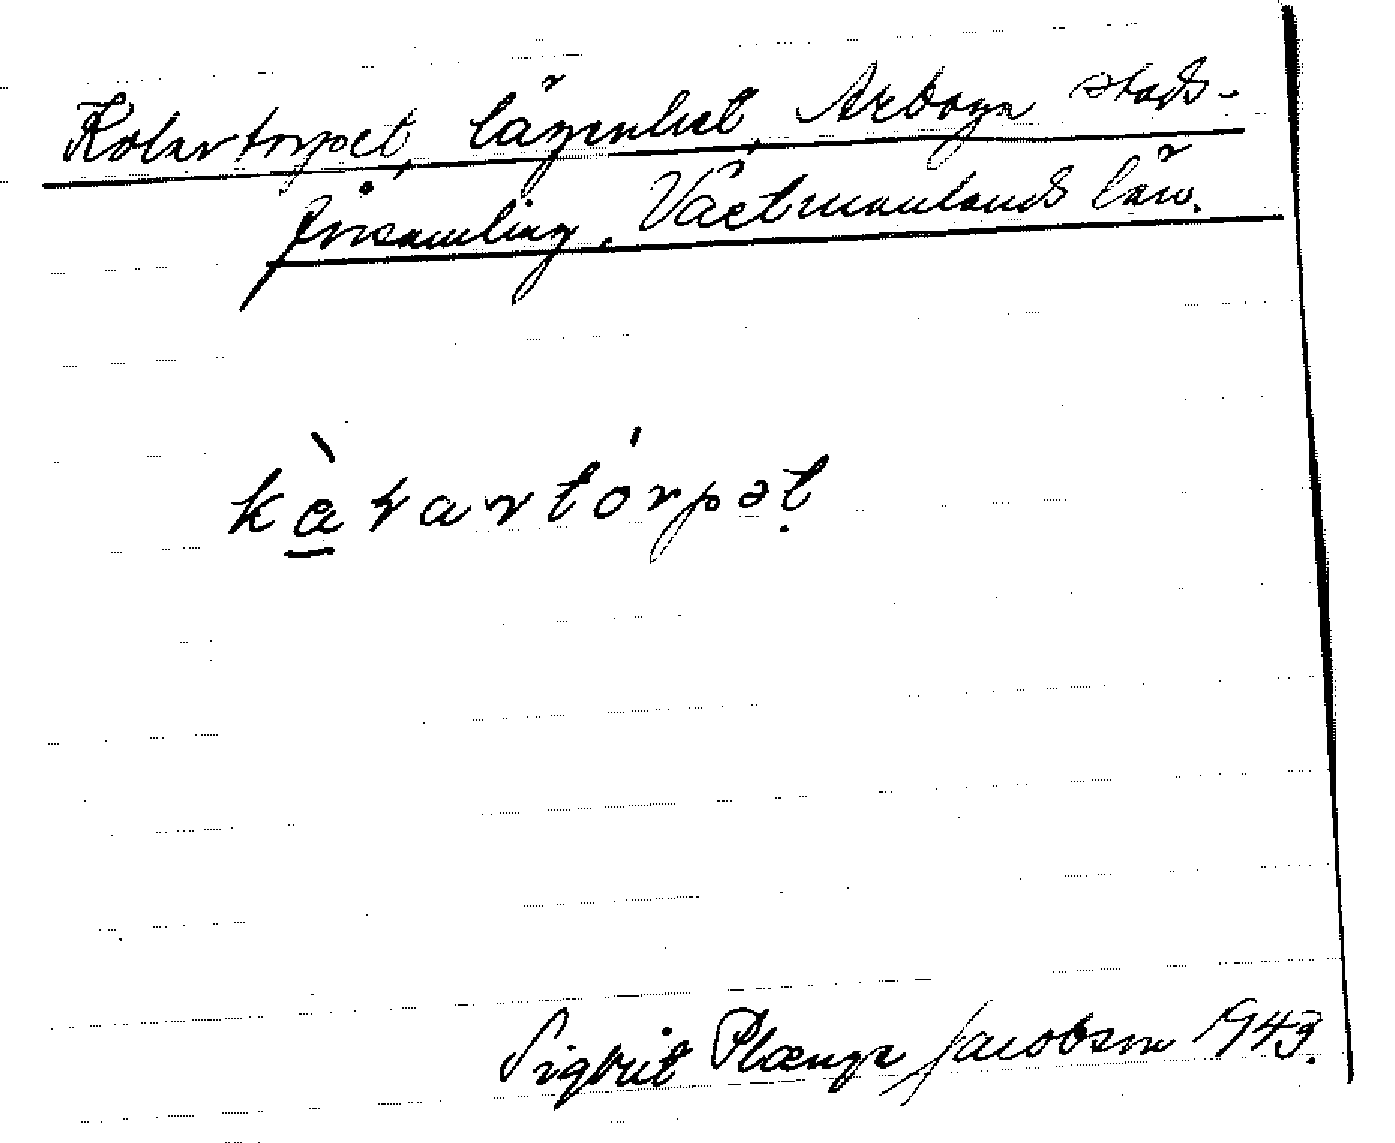 Kolartorpet, lägenhet, Arboga stads-
församling, Västmanlands län.
kàɽartórpəṭ
Sigbrit Plænge Jacobson 1943.